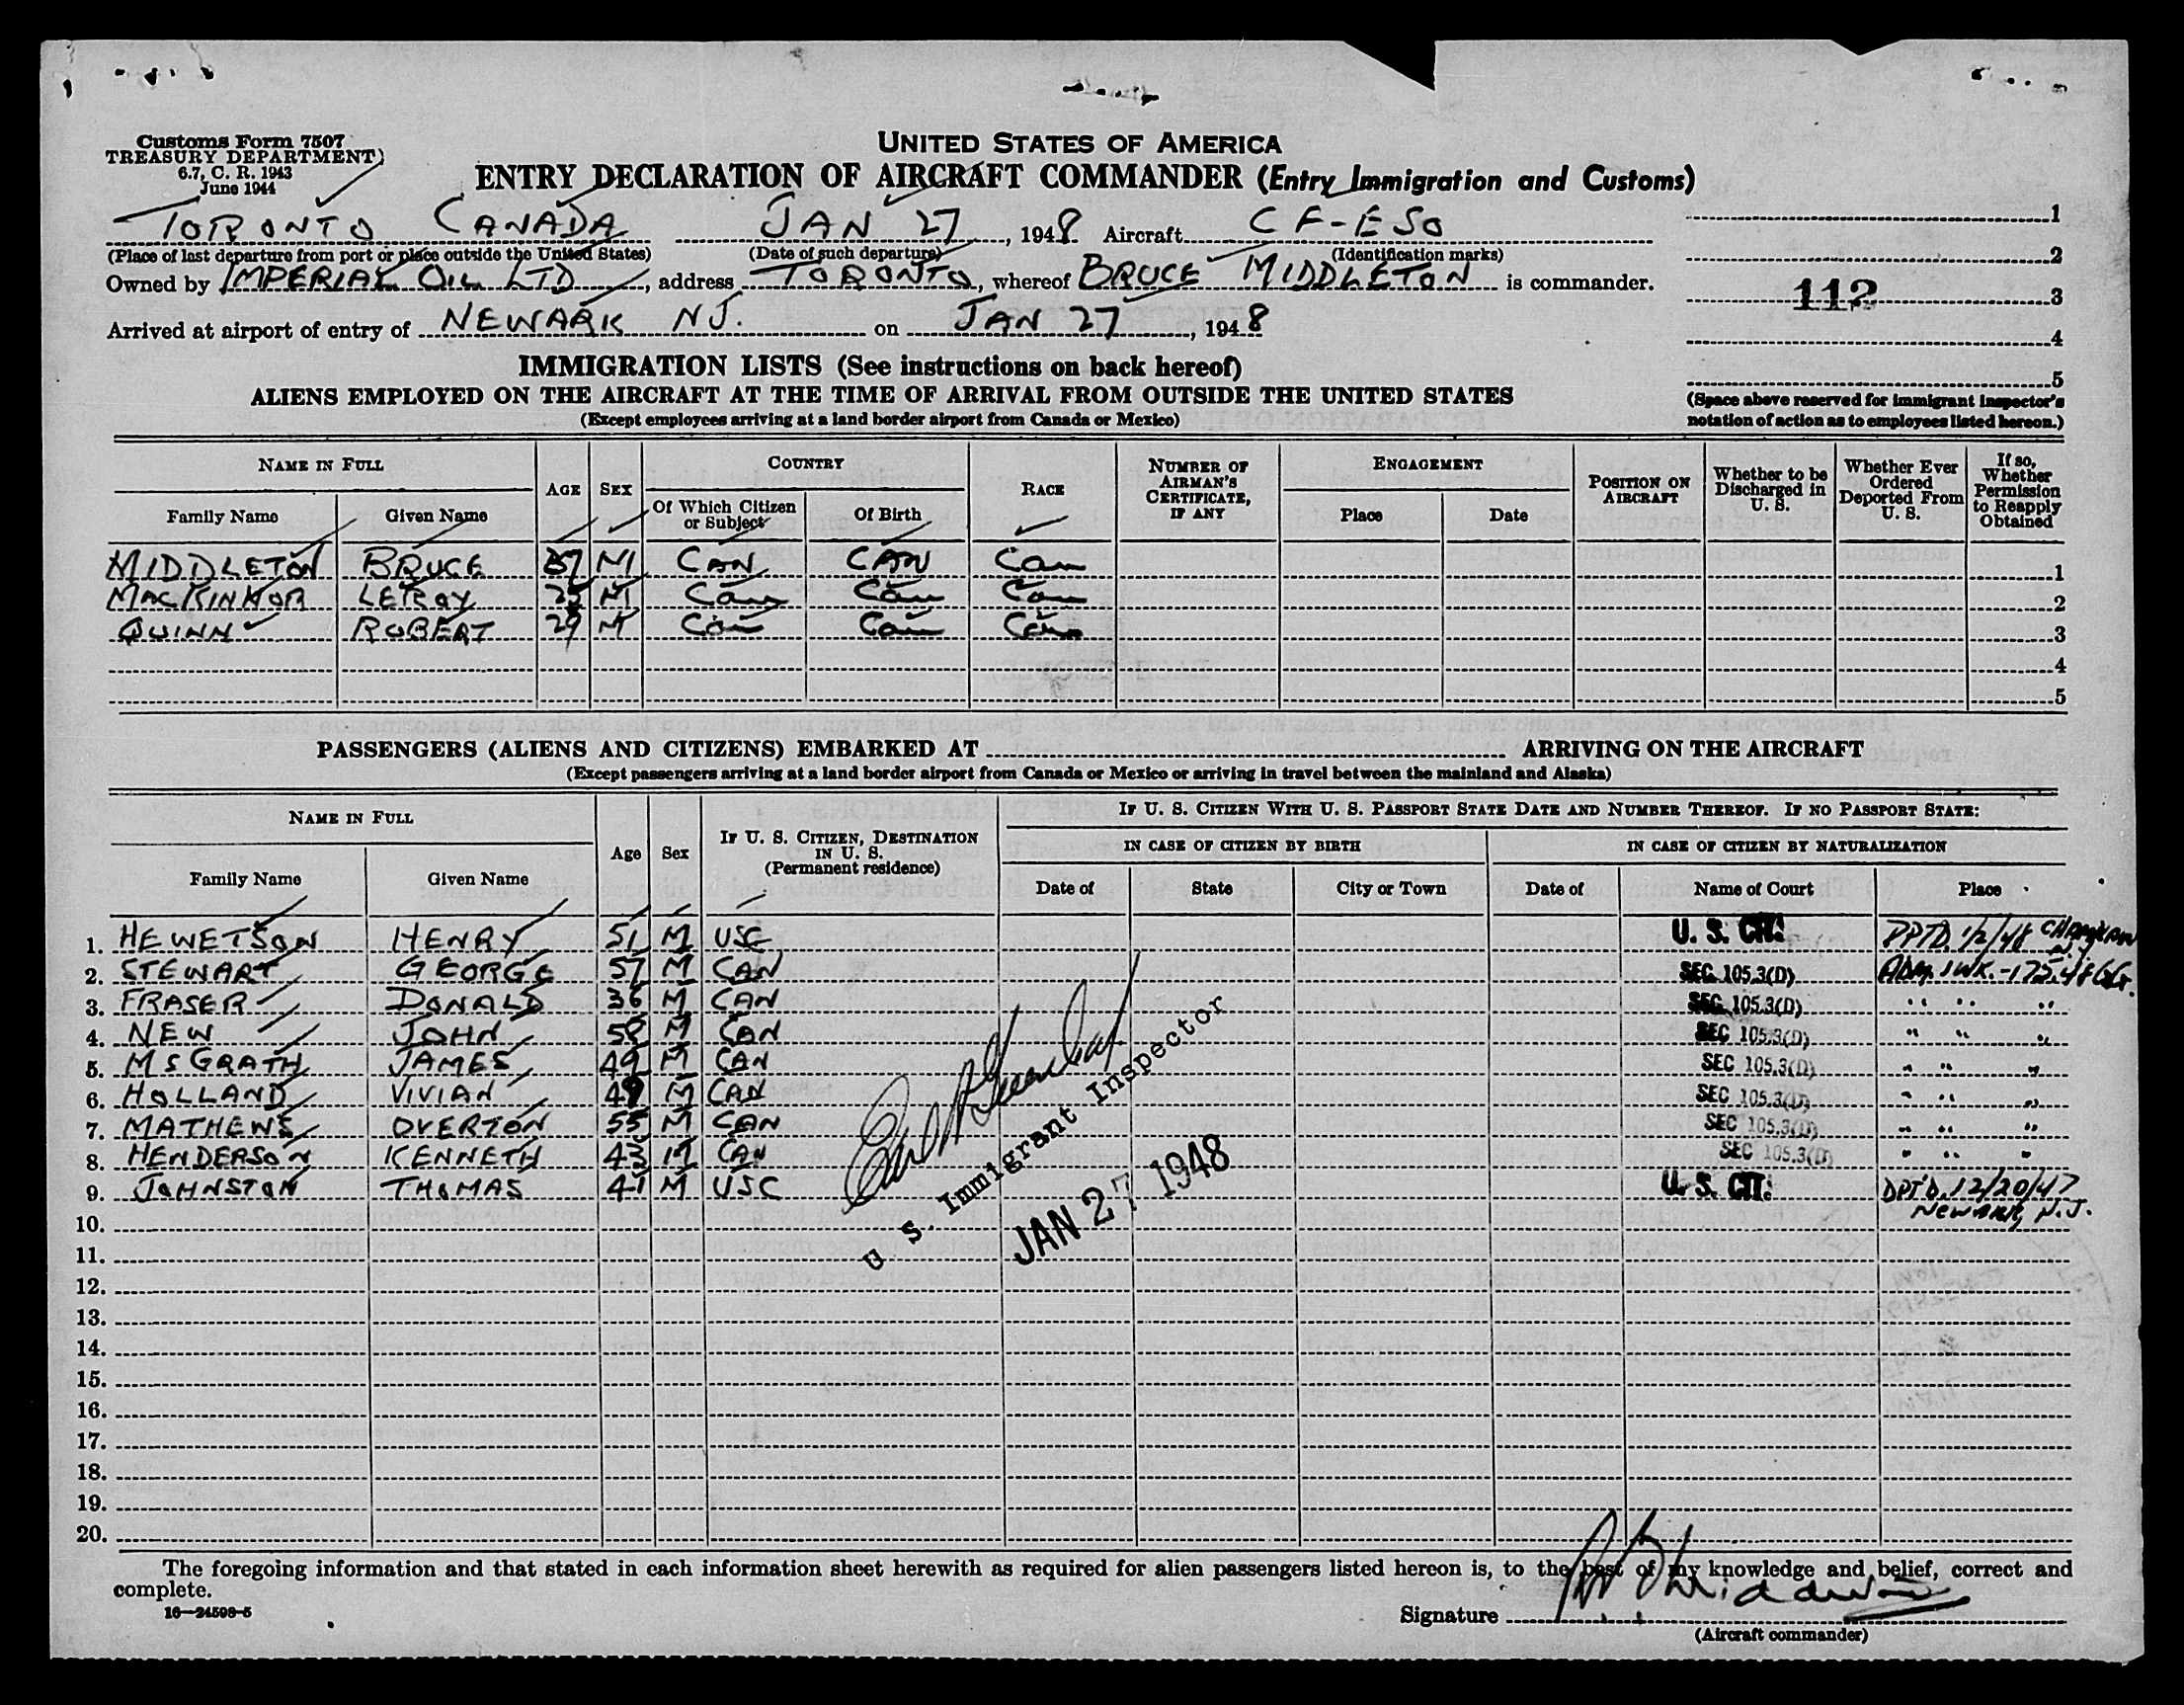 Customs Form 7507
TREASURY DEPARTMENT
6.7, C. R. 1943
June 1944
UNITED STATES OF AMERICA
ENTRY DECLARATION OF AIRCRAFT COMMANDER (Entry Immigration and Customs)
TORONTO CANADA JAN 27, 1948 Aircraft CF-ESO
(Place of last departure from port or place outside the United States) (Date of such departure) (Identification marks)
Owned by IMPERIAL OIL LTD, address TORONTO, whereof BRUCE MIDDLETON is commander.
Arrived at airport of entry of NEWARK NJ. on JAN 27, 1948
1
2
112 3
4
5
(Space above reserved for immigrant inspector's
notation of action as to employees listed hereon.)
IMMIGRATION LISTS (See instructions on back hereof)
ALIENS EMPLOYED ON THE AIRCRAFT AT THE TIME OF ARRIVAL FROM OUTSIDE THE UNITED STATES
(Except employees arriving at a land border airport from Canada or Mexico)
NAME IN FULL
Family Name Given Name
AGE SEX
COUNTRY
Of Which Citizen or Subject Of Birth
RACE
NUMBER OF AIRMAN'S CERTIFICATE, IF ANY
ENGAGEMENT
Place Date
POSITION ON AIRCRAFT
Whether to be Discharged in U. S.
Whether Ever Ordered Deported From U. S.
If so, Whether Permission to Reapply Obtained
MIDDLETON BRUCE 37 M CAN CAN Can 1
MACKINNOR LEROY M Can Can Can 2
QUINN ROBERT 29 M Can Can Can 3
4
5
PASSENGERS (ALIENS AND CITIZENS) EMBARKED AT ARRIVING ON THE AIRCRAFT
(Except passengers arriving at a land border airport from Canada or Mexico or arriving in travel between the mainland and Alaska)
NAME IN FULL
Family Name Given Name
Age Sex
IF U. S. CITIZEN, DESTINATION IN U. S.
(Permanent residence)
IF U. S. CITIZEN WITH U. S. PASSPORT STATE DATE AND NUMBER THEREOF. IF NO PASSPORT STATE:
IN CASE OF CITIZEN BY BIRTH IN CASE OF CITIZEN BY NATURALIZATION
Date of State City or Town Date of Name of Court Place
1. HEWETSON HENRY 51 M USC U. S. CIT. DPTD. 1/2/48
2. STEWART GEORGE 57 M CAN SEC 105.3(D) ADM. 1 WK.
3. FRASER DONALD 36 M CAN SEC 105.3(D) " " "
4. NEW JOHN 58 M CAN SEC 105.3(D) " " "
5. McGRATH JAMES 49 M CAN SEC 105.3(D) " " "
6. HOLLAND VIVIAN 49 M CAN SEC 105.3(D) " " "
7. MATHEWS OVERTON 55 M CAN SEC 105.3(D) " " "
8. HENDERSON KENNETH 43 M CAN SEC 105.3(D) " " "
9. JOHNSTON THOMAS 41 M USC U. S. CIT. DPT'D. 12/20/47
NEWARK, N.J.
U S. Immigrant Inspector
JAN 27 1948
10.
11.
12.
13.
14.
15.
16.
17.
18.
19.
20.
The foregoing information and that stated in each information sheet herewith as required for alien passengers listed hereon is, to the best of my knowledge and belief, correct and
complete.
16—24598-5
Signature
(Aircraft commander)